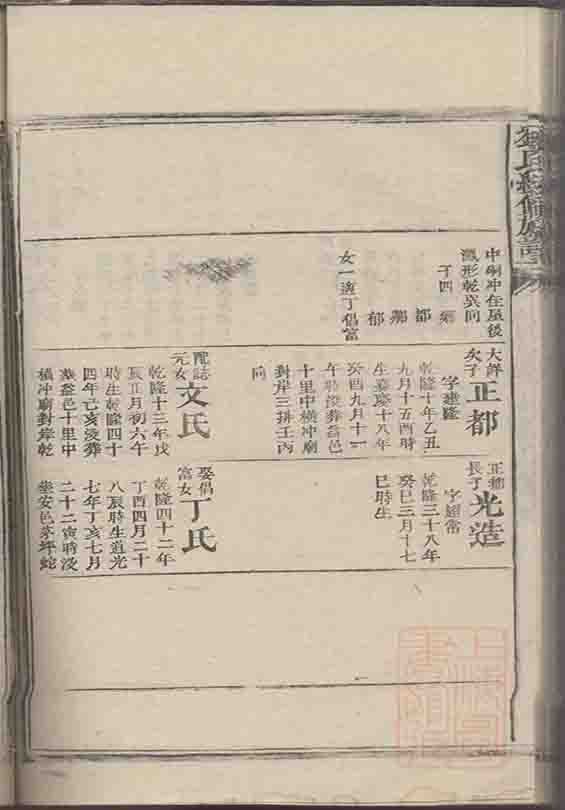 氏續修族譜
中硐冲在屋後
形乾巽向
子四
都
郁
女一適丁倡富
大詳
次子
正都
字建隆
乾隆十年乙丑
九月十五酉時
生嘉慶十八年
癸酉九月十二
午時沒葬益邑
十里中橫冲廟
對岸三拱壬丙
向
配誌
元女
文氏
乾隆十三年戊
辰正月初六午
時生乾隆四十
四年己亥沒葬
益邑十里中
橫冲廟對岸乾
正都
長子
光造
字廻常
乾隆三十八年
癸巳三月十七
巳時生
娶倡
富女
丁氏
乾隆四十二年
丁酉四月二十
八辰時生道光
七年丁亥七月
二十二寅時沒
塟安邑茅坪蛇